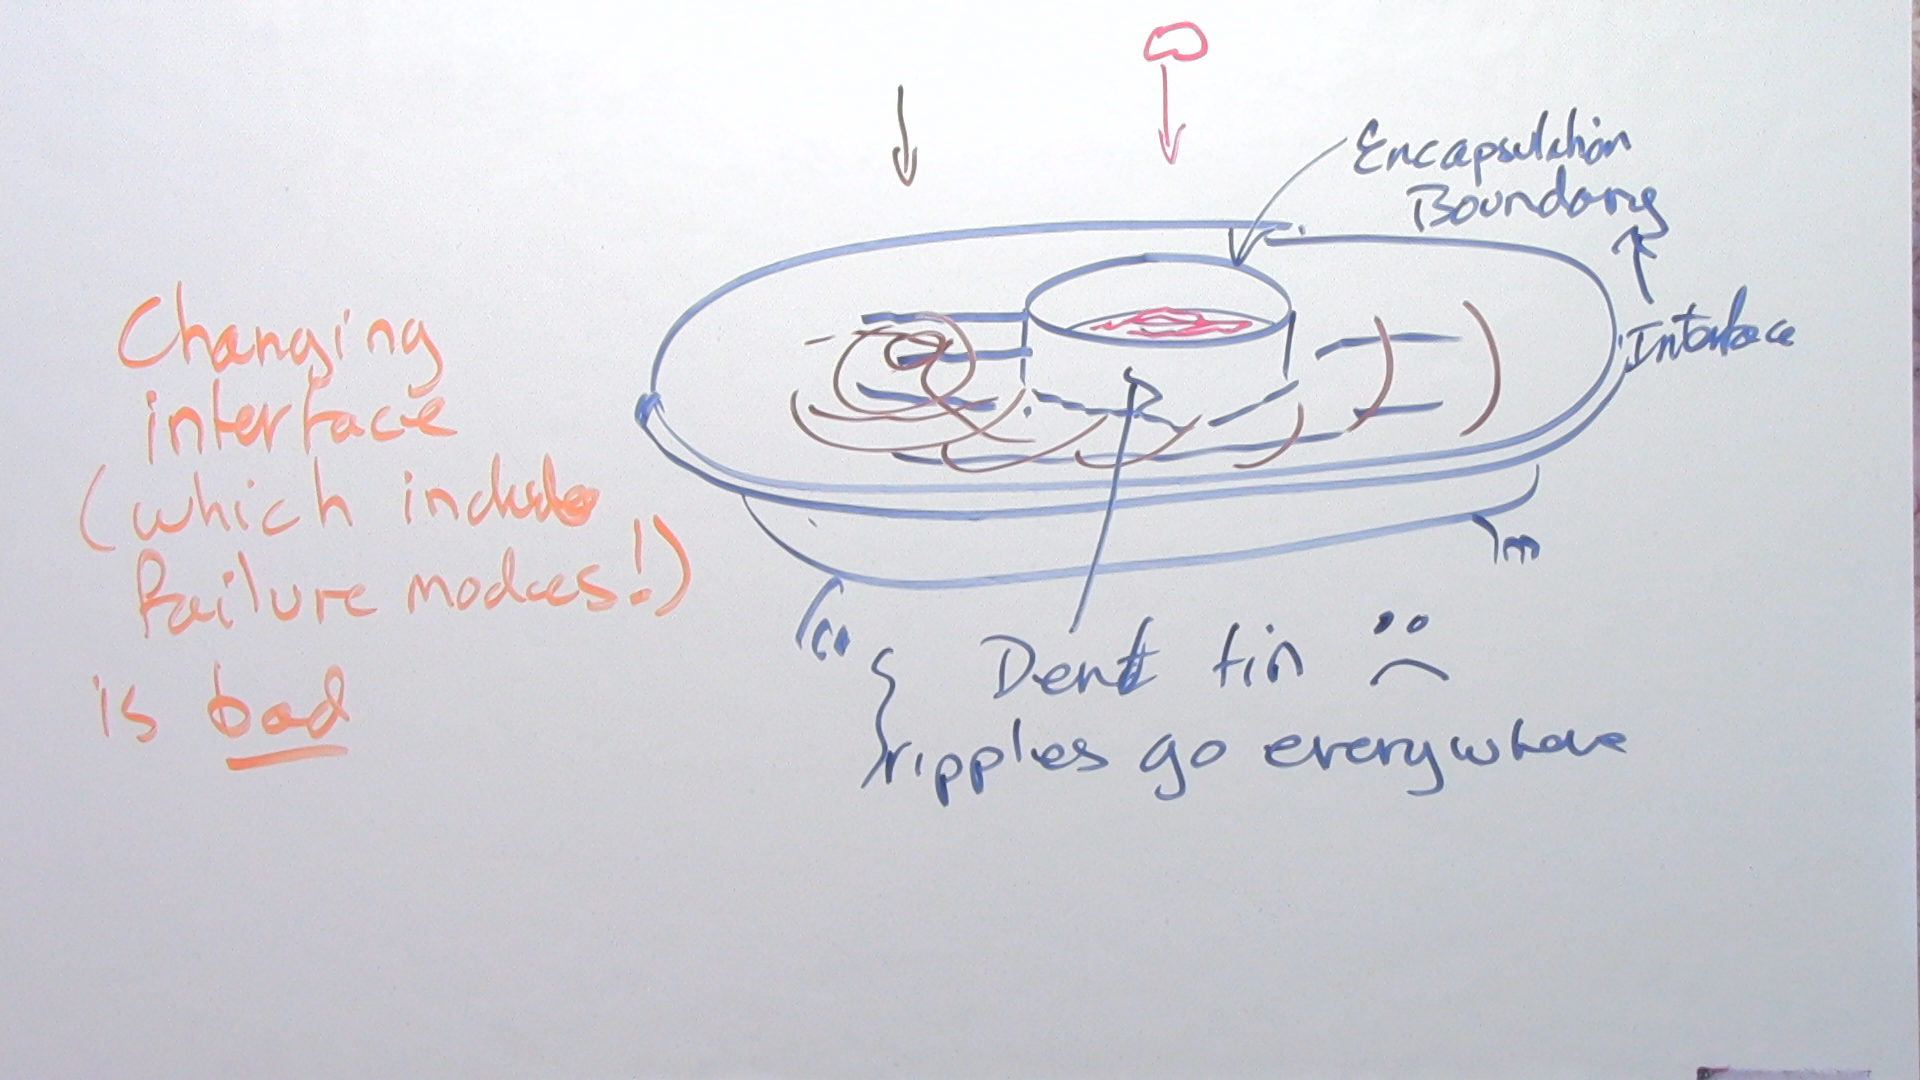 Encapsulation
Boundary
Interface
Changing
interface
(which includes
failure modes!)
is bad
Dent tin
ripples go everywhere